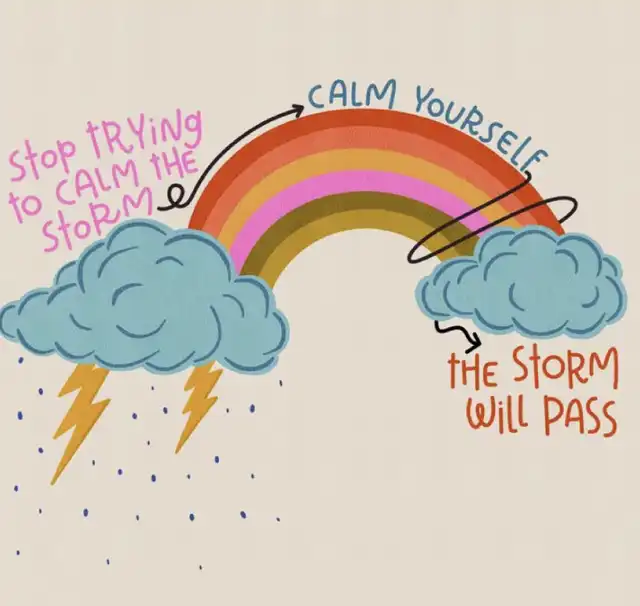 Stop tRYiNg
to CALM tHE
StoRM
CALM YOURSELF
tHE StoRM
Will PASS